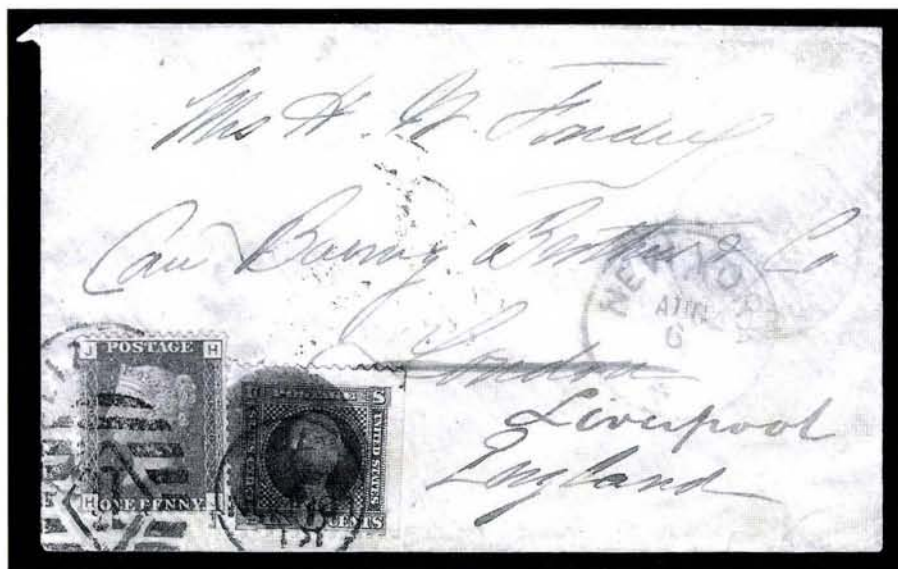 Mrs H. W. Fondey
Care Baring Brothers & Co
London
Liverpool
England
NEW YO
AUG
6
J POSTAGE H
H ONE PENNY J
POSTAGE
UNITED STATES
CENTS